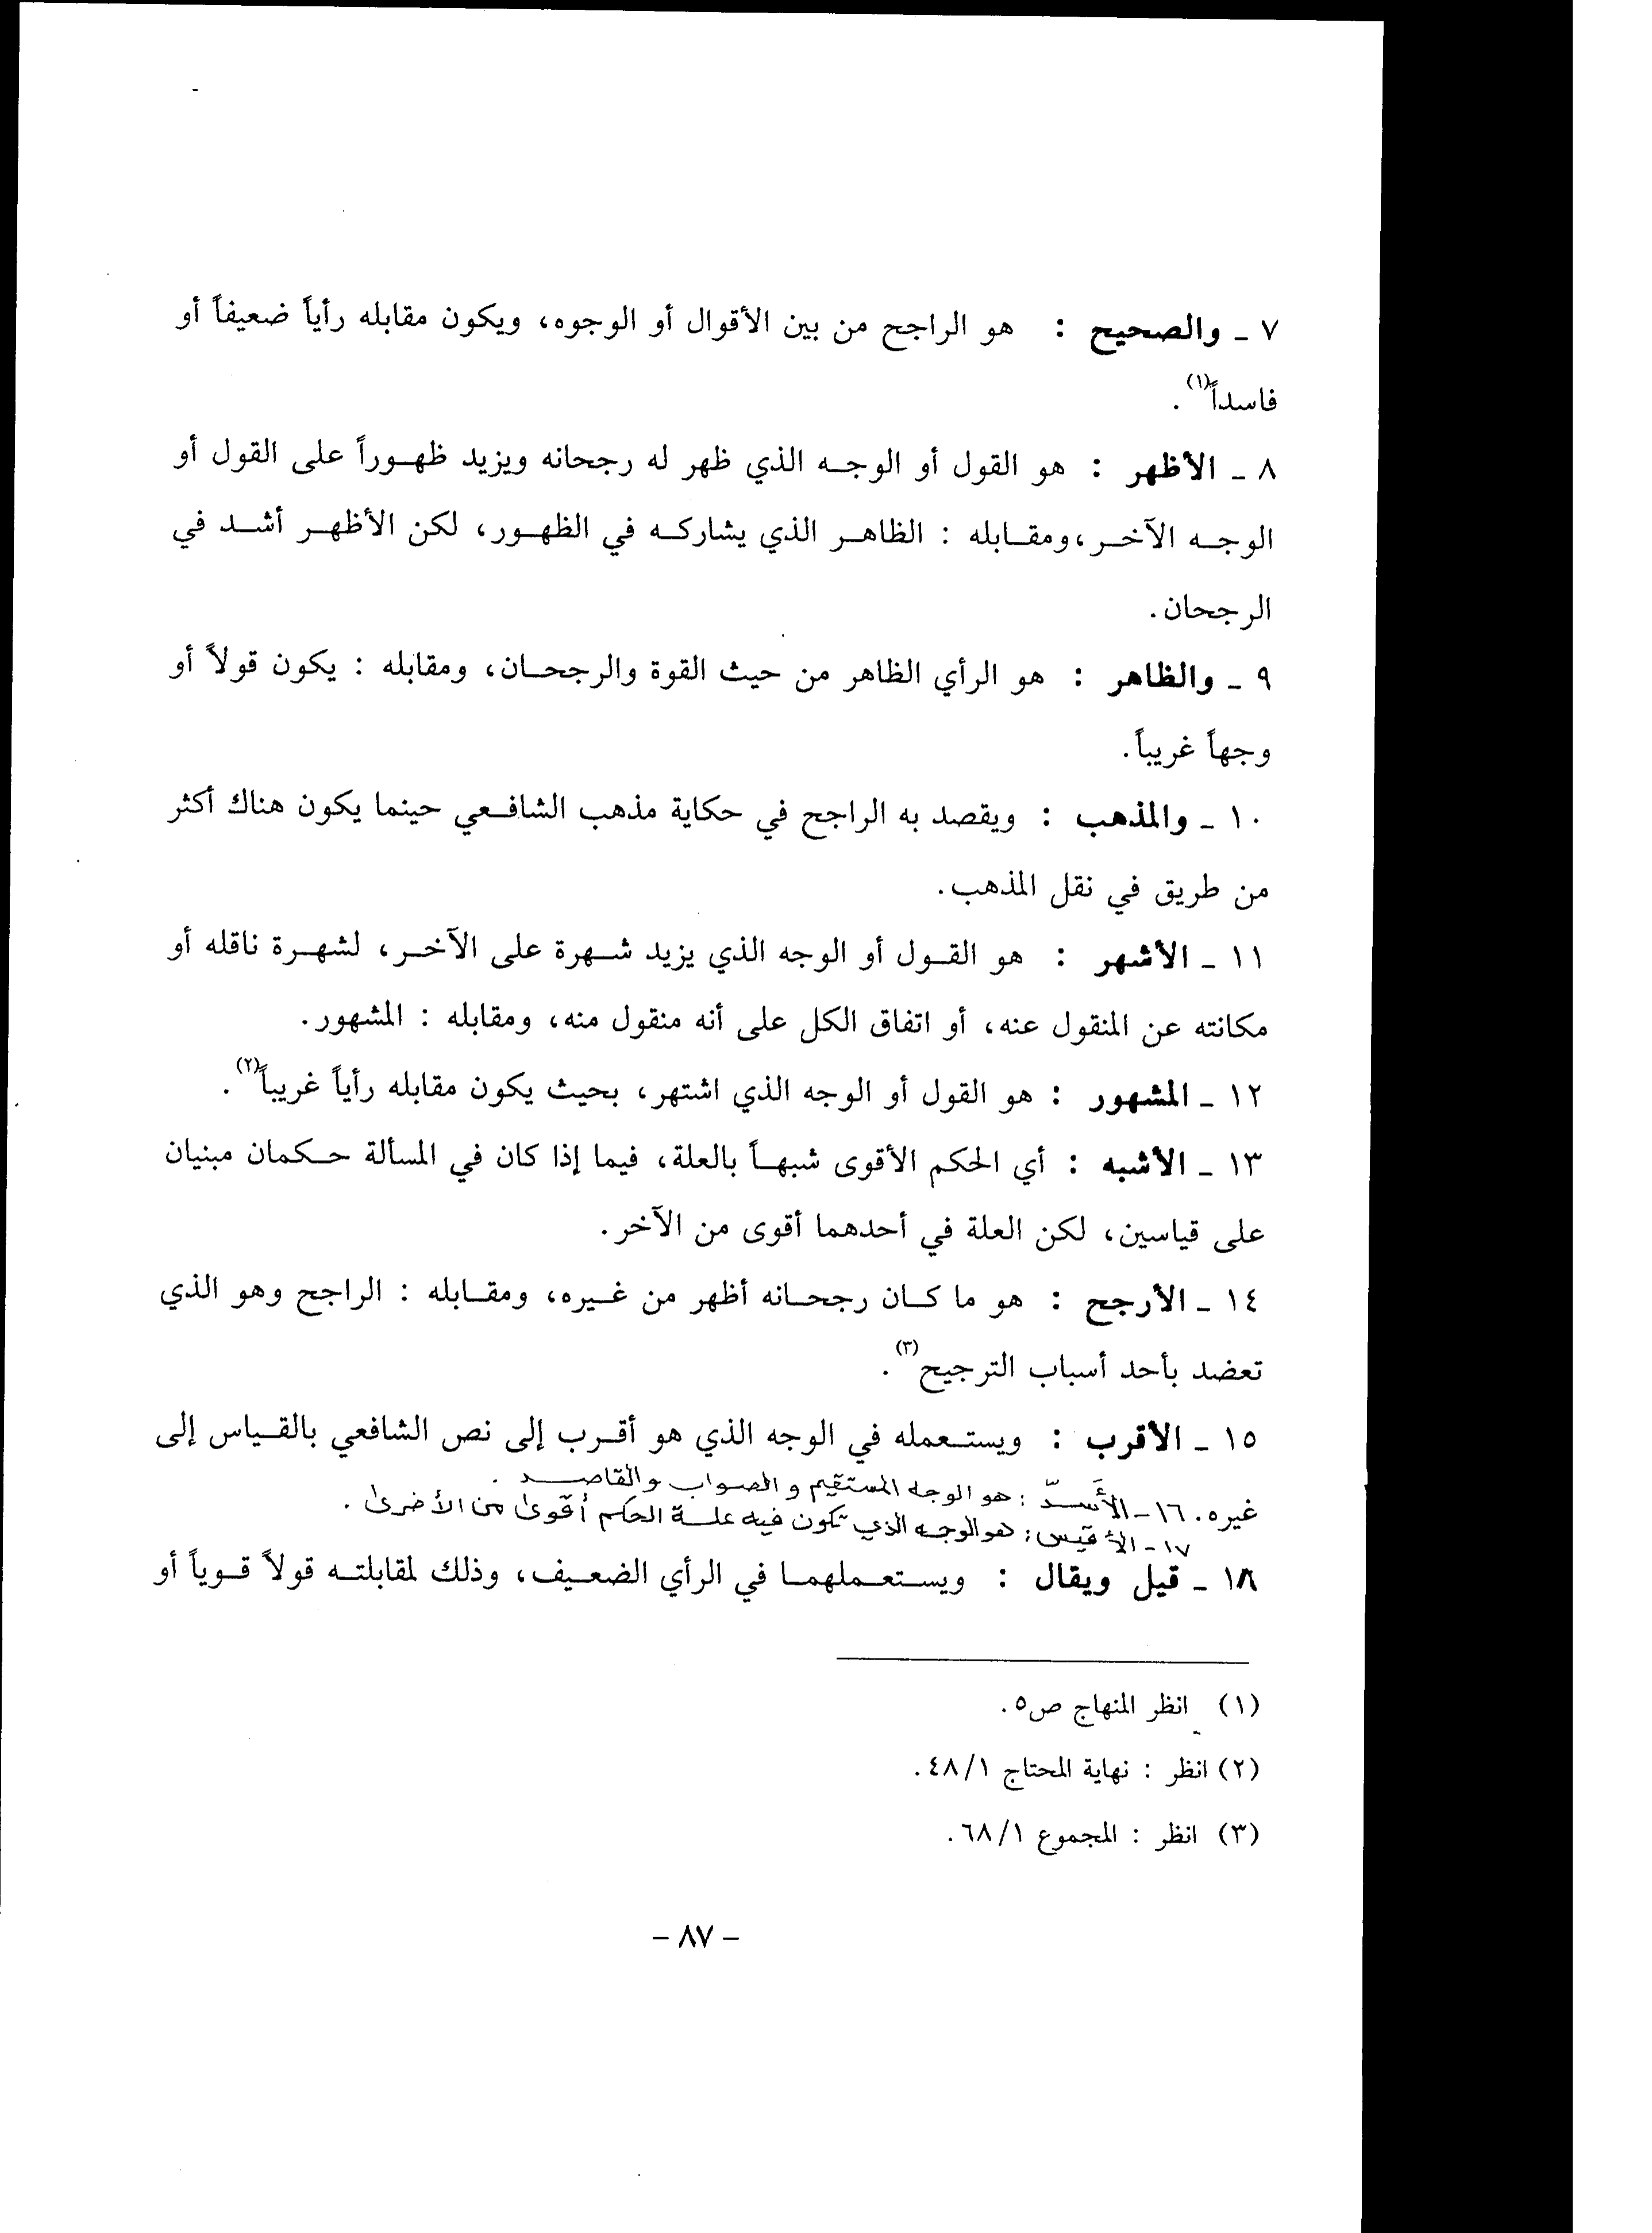 ٧ ـ والصحيح : هو الراجح من بين الأقوال أو الوجوه، ويكون مقابله رأياً ضعيفاً أو
فاسداً(١).
٨ ـ الأظهر : هو القول أو الوجـه الذي ظهر له رجحانه ويزيد ظهـوراً على القول أو
الوجـه الآخـر،ومقـابله : الظاهـر الذي يشاركـه في الظهـور، لكن الأظهـر أشـد في
الرجحان.
٩ ـ والظاهر : هو الرأي الظاهر من حيث القوة والرجحـان، ومقابله : يكون قولاً أو
وجهاً غريباً.
١٠ ـ والمذهب : ويقصد به الراجح في حكاية مذهب الشافـعي حينما يكون هناك أكثر
من طريق في نقل المذهب.
١١ ـ الأشهر : هو القـول أو الوجه الذي يزيد شـهرة على الآخـر، لشهـرة ناقله أو
مكانته عن المنقول عنه، أو اتفاق الكل على أنه منقول منه، ومقابله : المشهور.
١٢ ـ المشهور : هو القول أو الوجه الذي اشتهر، بحيث يكون مقابله رأياً غريباً(٢).
١٣ ـ الأشبه : أي الحكم الأقوى شبهـاً بالعلة، فيما إذا كان في المسألة حـكمان مبنيان
على قياسين، لكن العلة في أحدهما أقوى من الآخر.
١٤ ـ الأرجح : هو ما كـان رجحـانه أظهر من غـيره، ومقـابله : الراجح وهو الذي
تعضد بأحد أسباب الترجيح(٣).
١٥ ـ الأقرب : ويستـعمله في الوجه الذي هو أقـرب إلى نص الشافعي بالقـياس إلى
غيره. ١٦ـ الأَسـدّ : هو الوجه المستقيم والصواب والقاصـد .
١٧ـ الأقيس : هو الوجه الذي تكون فيه علـة الحكم أقوىٰ من الأخرىٰ .
١٨ ـ قيل ويقال : ويسـتعـملهمـا في الرأي الضعـيف، وذلك لمقابلتـه قولاً قـوياً أو
(١) انظر المنهاج ص٥.
(٢) انظر : نهاية المحتاج ٤٨/١.
(٣) انظر : المجموع ٦٨/١.
– ٨٧ –